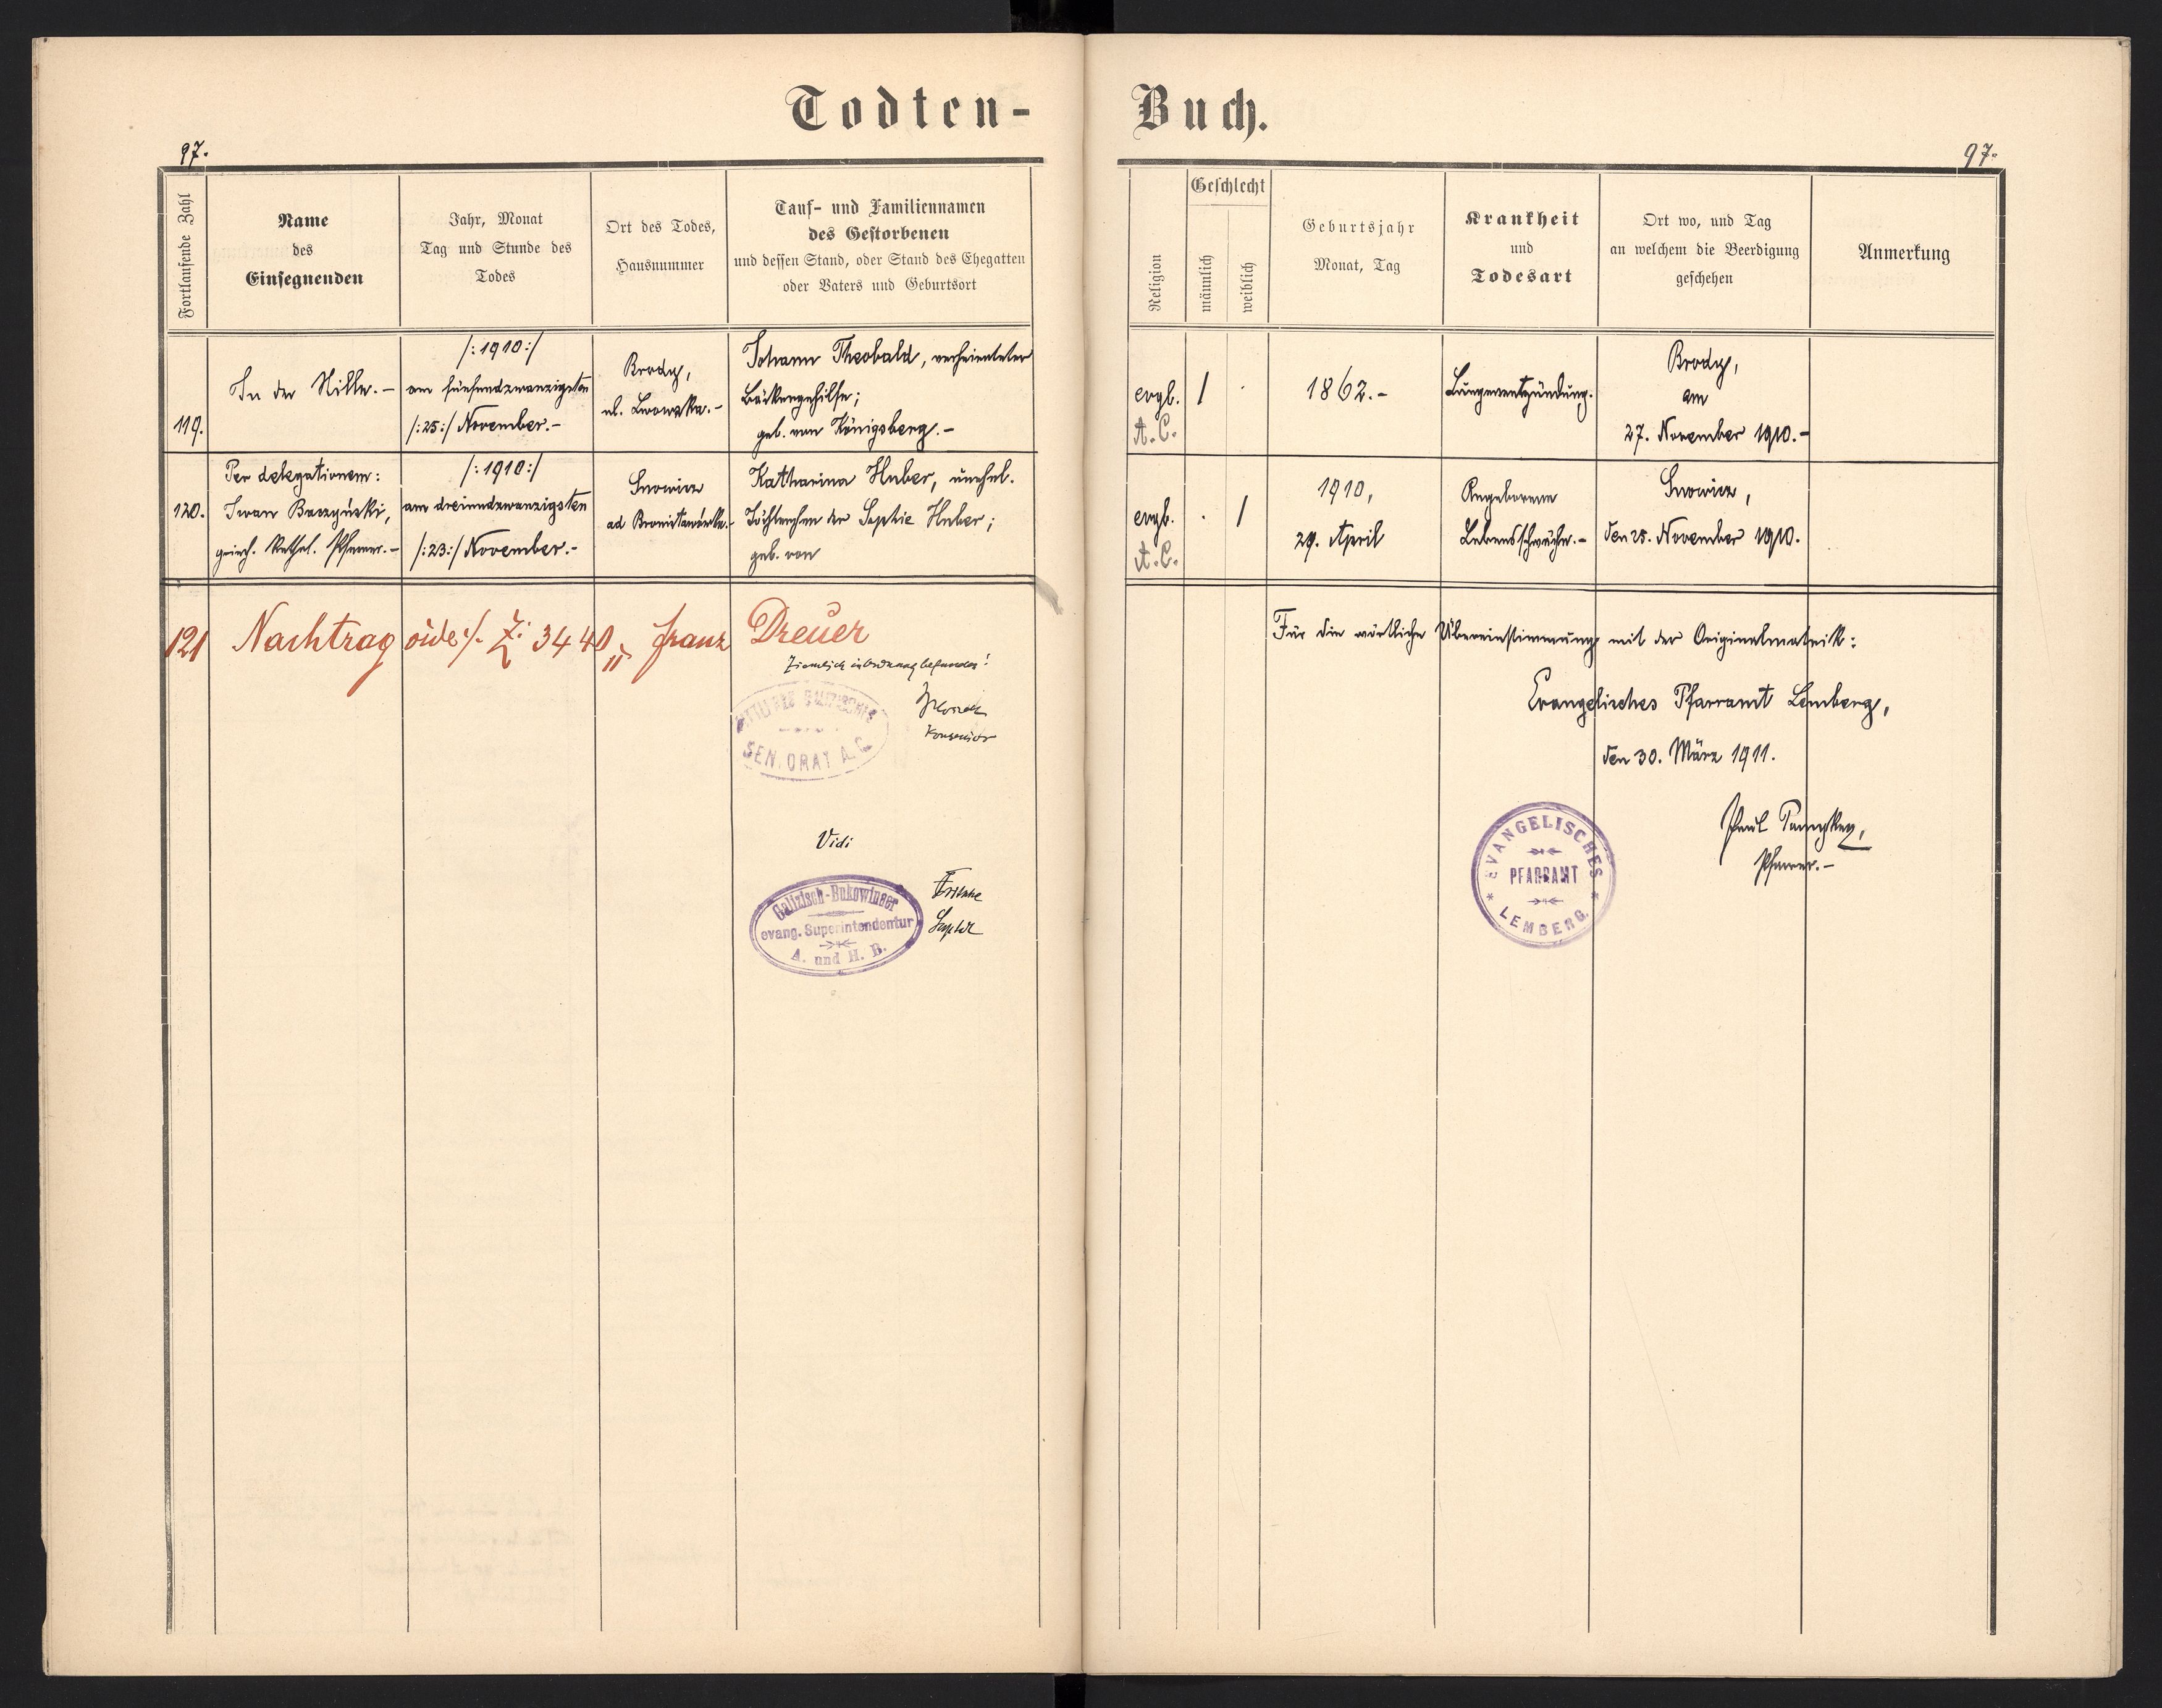 Todten-
Buch.
97.
97.
Fortlaufende Zahl
Name
des
Einsegnenden
Jahr, Monat
Tag und Stunde des
Todes
Ort des Todes,
Hausnummer
Tauf- und Familiennamen
des Gestorbenen
und dessen Stand, oder Stand des Ehegatten
oder Vaters und Geburtsort
Religion
Geschlecht
männlich
weiblich
Geburtsjahr
Monat, Tag
Krankheit
und
Todesart
Ort wo, und Tag
an welchem die Beerdigung
geschehen
Anmerkung
119.
In der Stille.-
/:1910:/
am fünfundzwanzigsten
/:25:/ November.-
Brody,
ul. Lwowska.-
Johann Theobald, verheirateter
Bäckergehilfe;
geb. von Königsberg.-
evgl.
A.C.
/
.
1862.-
Lungenentzündung.
Brody,
am
27. November 1910.-
120.
Per delegationem:
Iwan Baczyński,
griech. kathol. Pfarrer.-
/:1910:/
am dreiundzwanzigsten
/:23:/ November.-
Snowicz
ad
Katharina Huber, unehel.
Töchterchen der Sophie Huber;
geb. von
evgl.
A.C.
.
/
1910,
29. April
Angeborene
Lebensschwäche.-
Snowicz,
den 25. November 1910.
121 Nachtrag Z: 3440 Franz Dreuer
Ziemlich in Ordnung befunden!
SENIORAT A. C.
Konsenior
Vidi
Galizisch-Bukowinaer
evang. Superintendentur
A. und H. B.
Fritsche
Suptdt
Für die wörtliche Übereinstimmung mit der Originalmatrik:
Evangelisches Pfarramt Lemberg,
den 30. März 1911.
EVANGELISCHES
PFARRAMT
* LEMBERG. *
Paul
Pfarrer.-